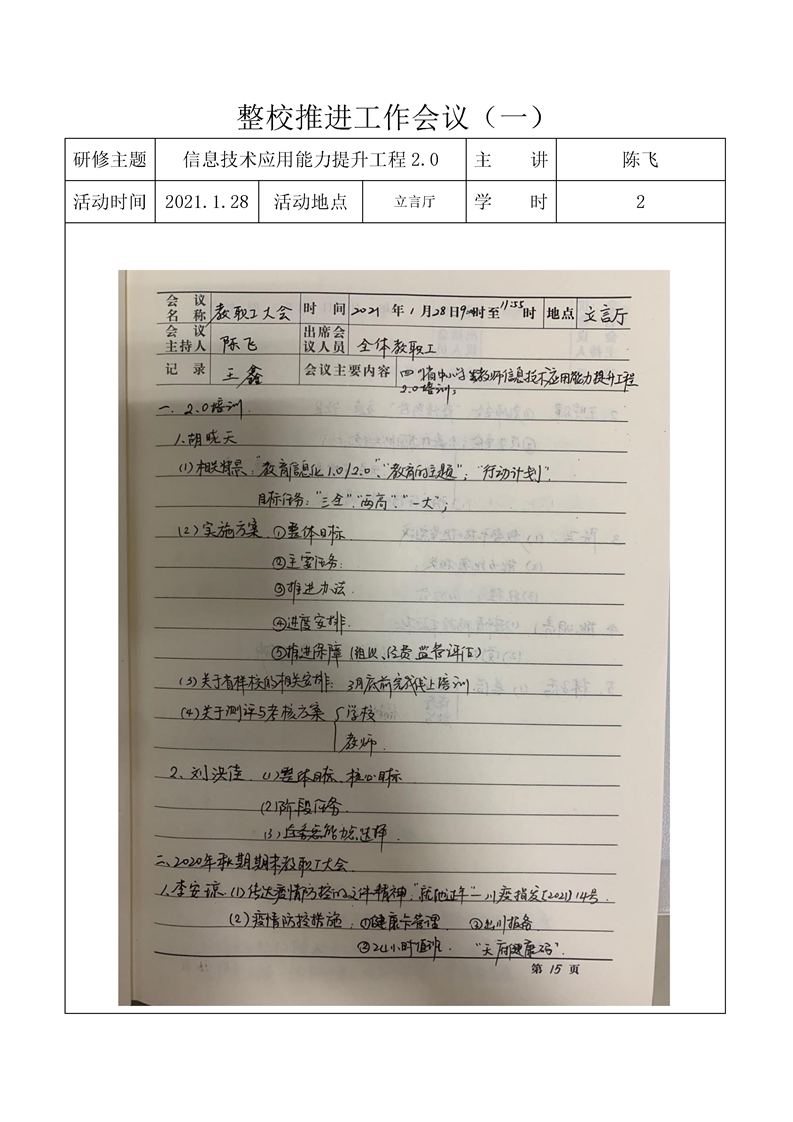 整校推进工作会议（一）
研修主题 信息技术应用能力提升工程 2.0 主 讲 陈飞
活动时间 2021.1.28 活动地点 立言厅 学 时 2
会议名称 教职工大会 时间 2021年1月28日9时至11:55时 地点 立言厅
会议主持人 陈飞 出席会议人员 全体教职工
记录 王鑫 会议主要内容 四川省中小学教师信息技术应用能力提升工程
2.0培训;
一、2.0培训.
1.胡晓天
(1)相关背景:"教育信息化1.0/2.0"、"教育的主题";"行动计划".
目标任务:"三全""两高""一大";
(2)实施方案 ①整体目标.
②主要任务:
③推进办法.
④进度安排.
⑤推进保障(组织、经费、监管评估)
(3)关于有样校的相关安排: 3月底前完成线上培训.
(4)关于测评与考核方案 { 学校
教师.
2、刘洪佳. (1)整体目标、核心目标.
(2)阶段任务.
(3) 能力点选择.
二、2020年秋期期末教职工大会.
1.李安琼.(1)传达疫情防控的文件精神."就地过年"—川疫指发[2021]14号.
(2)疫情防控措施:①健康卡管理. ②出川报备.
③24小时值班. "天府健康码".
第 15 页